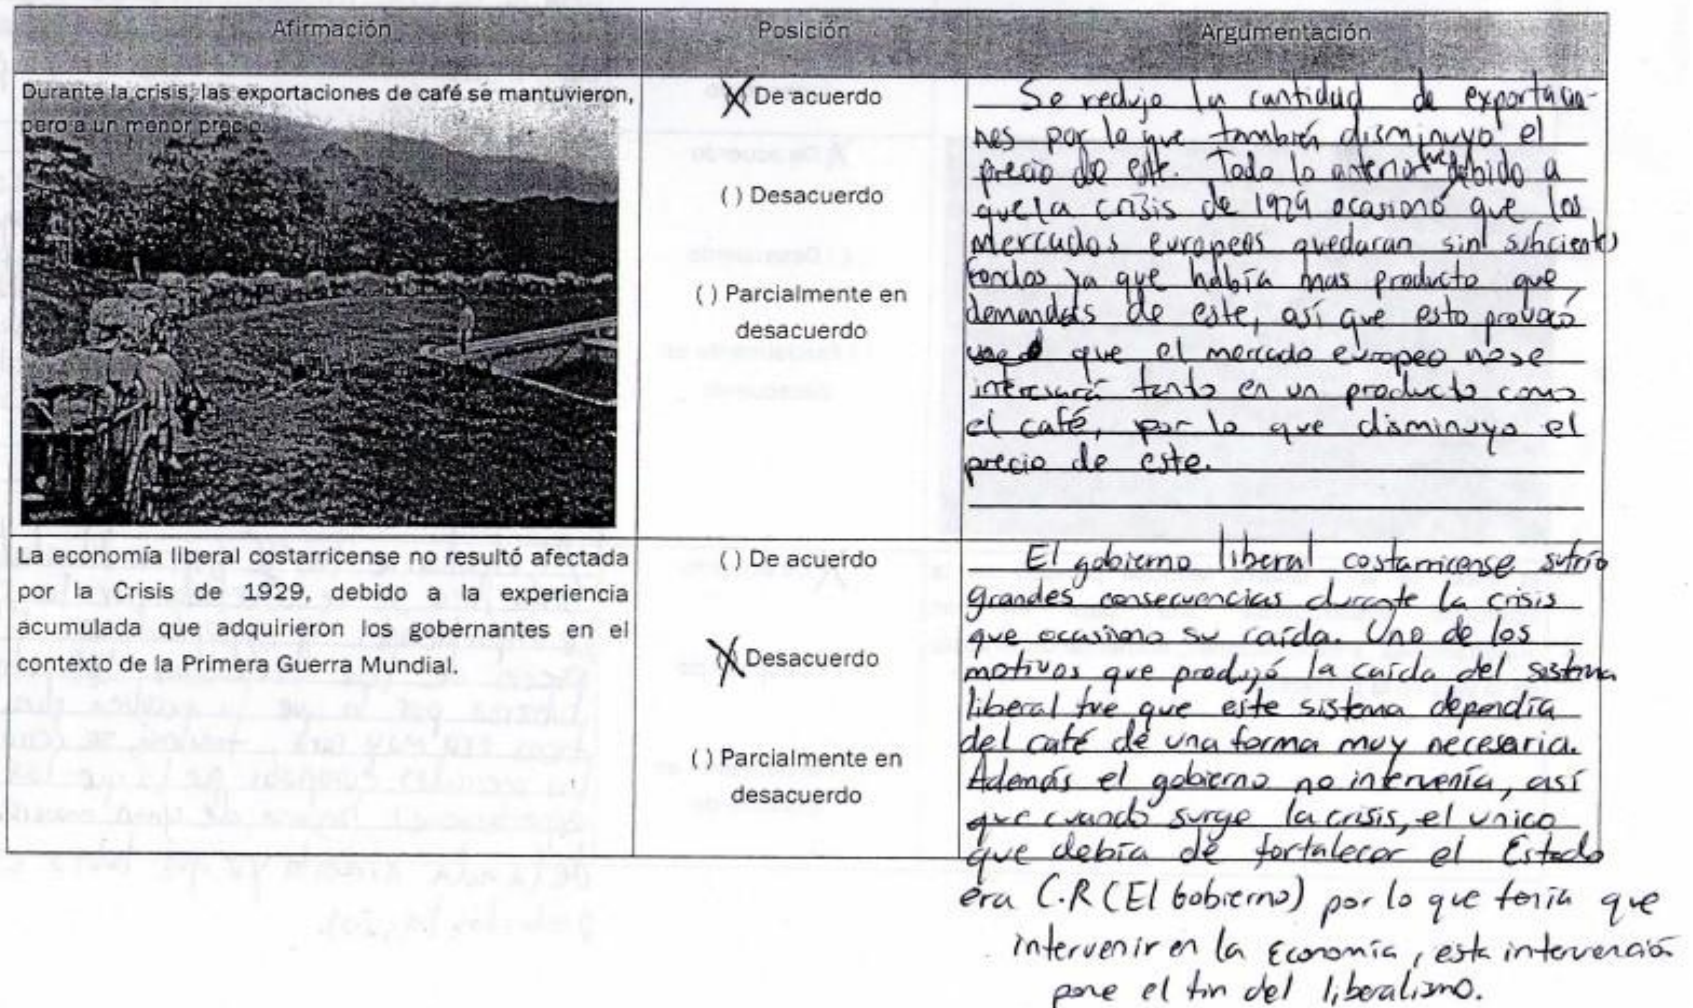 Afirmación
Posición
Argumentación
Durante la crisis, las exportaciones de café se mantuvieron,
pero a un menor precio.
De acuerdo
( ) Desacuerdo
( ) Parcialmente en
desacuerdo
Se redujo la cantidad de exportacio-
nes por lo que también disminuyo el
precio de este. Todo lo anterior fue debido a
que la crisis de 1929 ocasionó que los
mercados europeos quedaran sin suficientes
fondos ya que había mas producto que
demandas de este, así que esto provocó
que el mercado europeo no se
interesará tanto en un producto como
el café, por lo que disminuyo el
precio de este.
La economía liberal costarricense no resultó afectada
por la Crisis de 1929, debido a la experiencia
acumulada que adquirieron los gobernantes en el
contexto de la Primera Guerra Mundial.
( ) De acuerdo
( ) Desacuerdo
( ) Parcialmente en
desacuerdo
El gobierno liberal costarricense sufrío
grandes consecuencias durante la crisis
que ocasiono su caída. Uno de los
motivos que produjó la caída del sistema
liberal fue que este sistema dependía
del café de una forma muy necesaria.
Además el gobierno no intervenía, así
que cuando surge la crisis, el unico
que debía de fortalecer el Estado
era C.R (El Gobierno) por lo que tenía que
intervenir en la Economía, esta intervención
pone el fin del liberalismo.